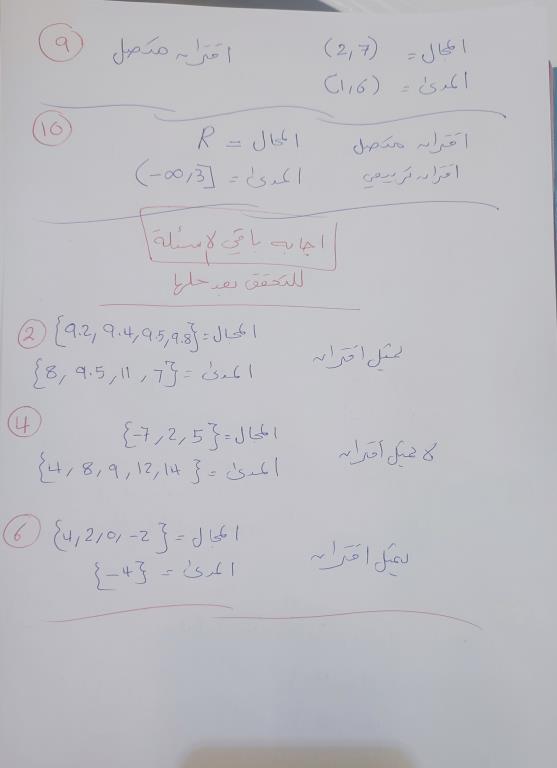 9
المجال = (2,7) اقتران متصل
المدى = (1,6)
10
اقتران متصل المجال = R
اقتران تربيعي المدى = (-∞,3]
اجابه باقي لاسئلة
للتحقق بعد حلها
2
المجال = {9.2, 9.4, 9.5, 9.8}
يمثل اقتران
المدى = {8, 9.5, 11, 7}
4
المجال = {-7, 2, 5}
لا يمثل اقتران
المدى = {4, 8, 9, 12, 14}
6
المجال = {4, 2, 0, -2}
يمثل اقتران
المدى = {-4}